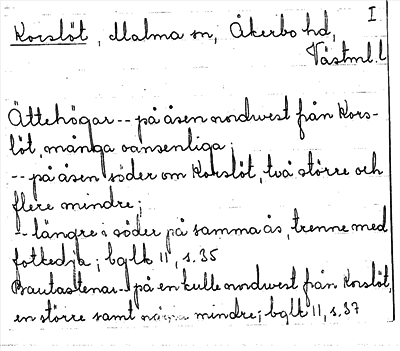 I
Korslöt, Malma sn, Åkerbo hd,
Västml. l
Ättehögar -- på åsen nordwest från Kors-
löt, många oansenliga;
-- på åsen söder om Korslöt, två större och
flere mindre;
-- längre i söder på samma ås, trenne med
fotkedja; bglk II, s. 35
Bautastenar -- på en kulle nordwest från Korslöt,
en större samt några mindre; bglk II, s. 37